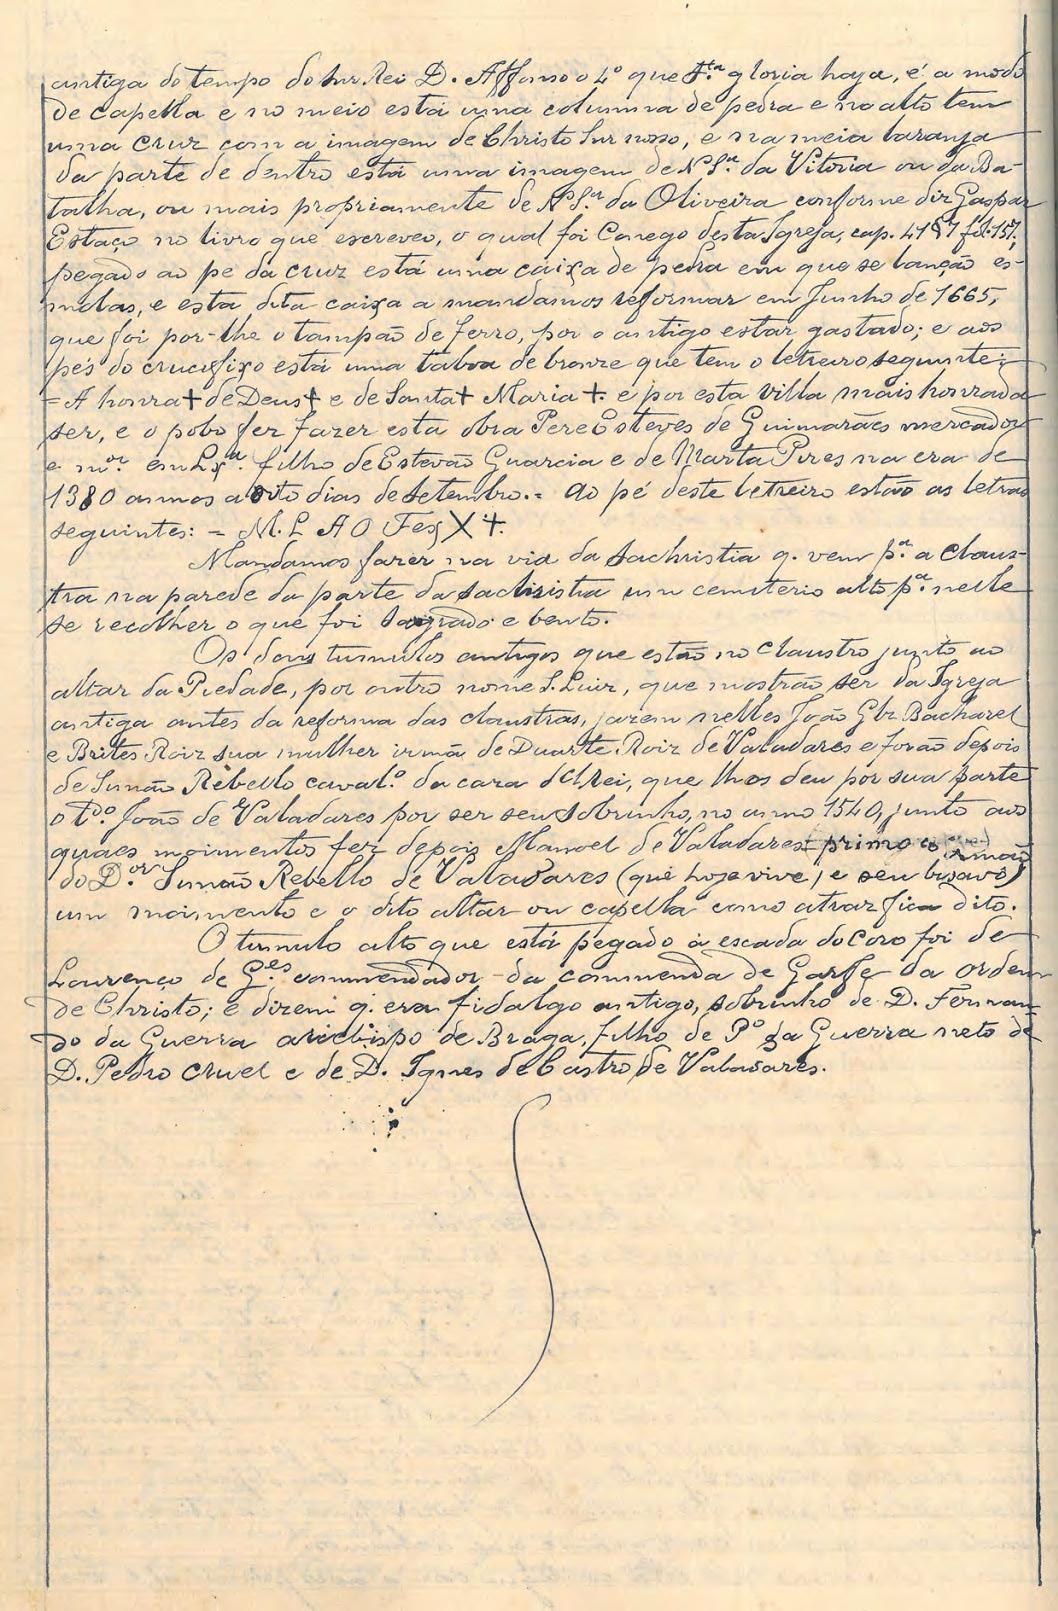 antiga do tempo do Snr. Rei D. Affonso o 4º que S.ta gloria haja, é a modo
de capella e no meio está uma columna de pedra e no alto tem
uma cruz com a imagem de Christo Snr nosso, e na meia laranja
da parte de dentro está uma imagem de N. S.ra da Vitoria ou da Ba-
talha, ou mais propriamente de N. S.ra da Oliveira conforme diz Gaspar
Estaço no livro que escreveo, o qual foi Conego desta Igreja, cap. fol. 157;
pegado ao pe da cruz está uma caixa de pedra em que se lanção es-
molas, e esta dita caixa a mandamos reformar em Junho de 1665,
que foi por-lhe o tampão de ferro, por o antigo estar gastado; e aos
pés do crucifixo está uma taboa de bronze que tem o letreiro seguinte:
= A honra + de Deus + e de Santa + Maria +. e por esta villa mais honrada
ser, e o pobo fez fazer esta obra Pere Esteves de Guimarães mercador
e m.or em Lx.ª filho de Estevão Guarcia e de Marta Pires na era de
1380 annos a oito dias de Setembro. = Ao pé deste letreiro estão as letras
seguintes: = M. L A O Fes X +.
Mandamos fazer na via da Sachristia q. vem p.ª a claus-
tra na parede da parte da Sachristia um cemiterio alto p.ª nelle
se recolher o que foi sagrado e bento.
Os dous tumulos antigos que estão no claustro junto ao
altar da Piedade, por outro nome S. Luiz, que mostrão ser da Igreja
antiga antes da reforma das claustras, jazem nelles João Glz Bacharel
e Brites Roiz sua mulher irmã de Duarte Roiz de Valadares e forão depois
de Simão Rebello caval.º da caza d'ElRei, que lhos deu por sua parte
o t.do João de Valadares por ser seu sobrinho, no anno 1540, junto aos
quaes moimentos fez depois Manoel de Valadares primo irmão
do D.or Simão Rebello de Valadares (que hoje vive) e seu bisavô)
um moimento e o dito altar ou capella como atraz fica dito.
O tumulo alto que está pegado à escada do Coro foi de
Lourenço de G.es commendador da commenda de Garfe da ordem
de Christo; e dizem q. era fidalgo antigo, sobrinho de D. Fernan-
do da Guerra arcebispo de Braga, filho de P.º da Guerra neto de
D. Pedro Cruel e de D. Ignes de Castro de Valadares.